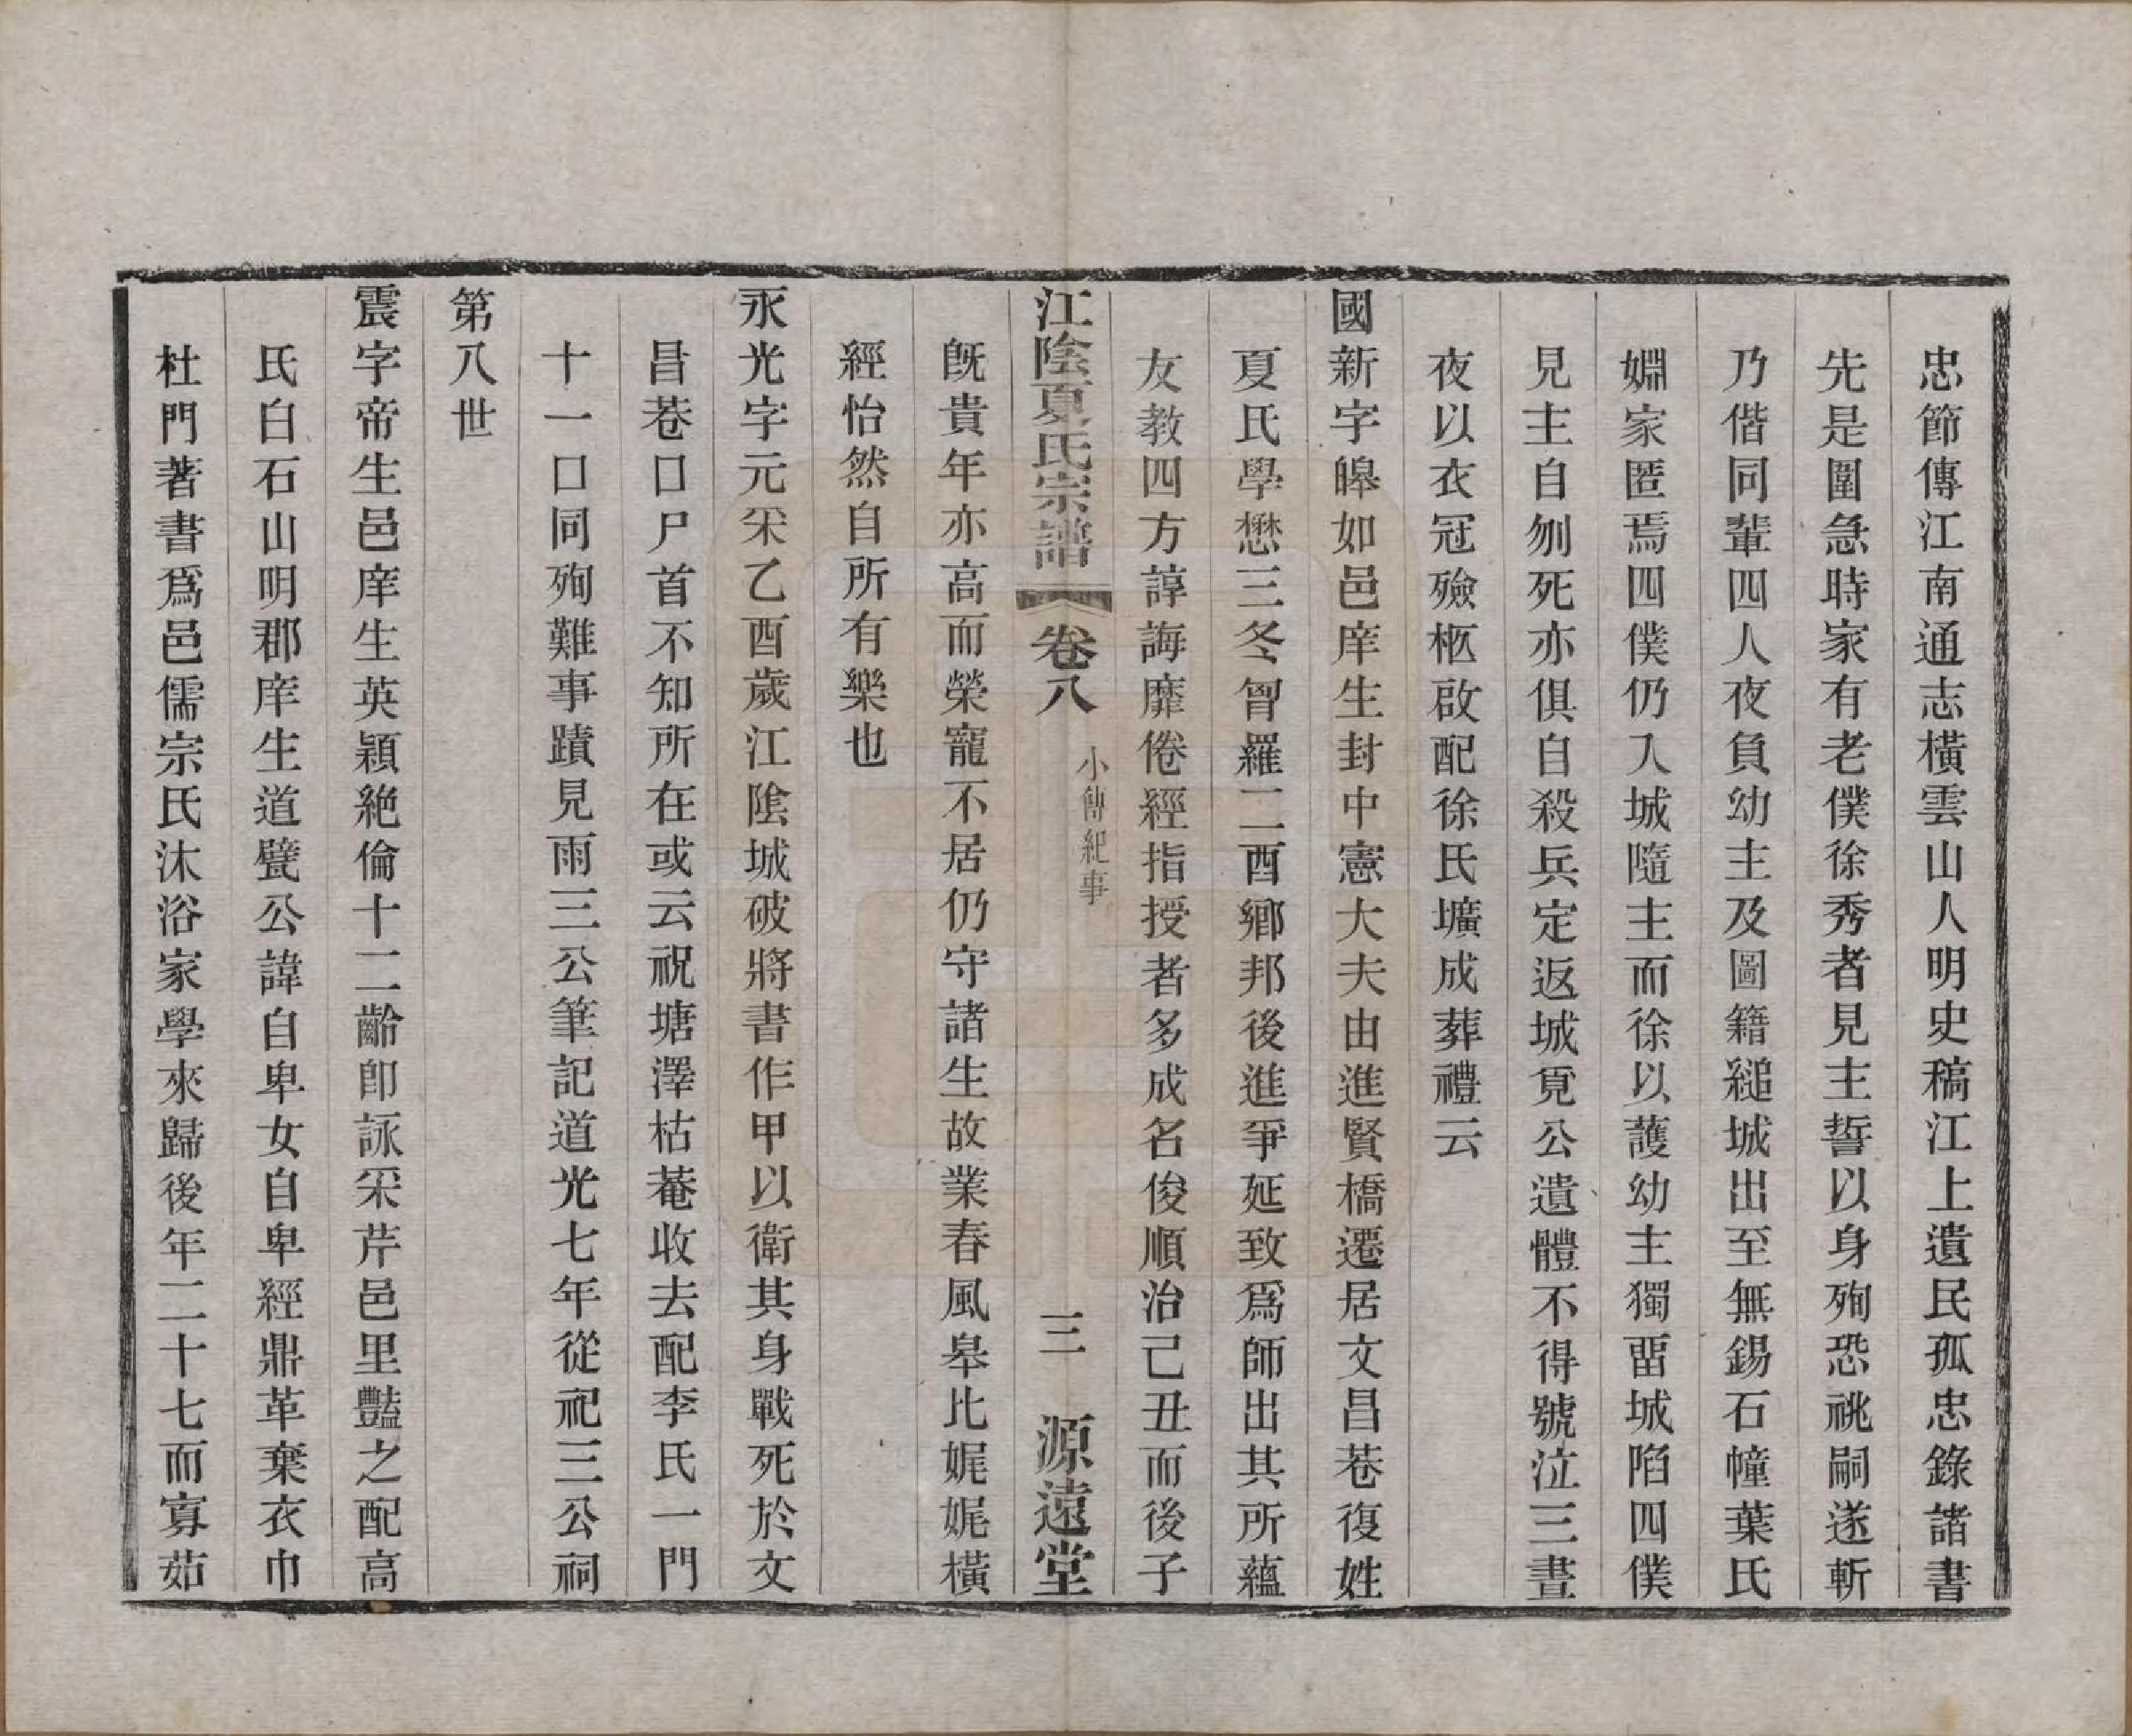 忠節傳江南通志橫雲山人明史稿江上遺民孤忠錄諸書
先是圍急時家有老僕徐秀者見主誓以身殉恐祧嗣遂斬
乃偕同輩四人夜負幼主及圖籍縋城出至無錫石幢葉氏
嫺家匿焉四僕仍入城隨主而徐以護幼主獨畱城陷四僕
見主自刎死亦俱自殺兵定返城覓公遺體不得號泣三晝
夜以衣冠殮柩啟配徐氏壙成葬禮云
國新字皞如邑庠生封中憲大夫由進賢橋遷居文昌巷復姓
夏氏學懋三冬曾羅二酉鄉邦後進爭延致爲師出其所蘊
友教四方諄誨靡倦經指授者多成名俊順治己丑而後子
江陰夏氏宗譜 卷八 小傳紀事 三 源遠堂
旣貴年亦高而榮寵不居仍守諸生故業春風皋比娓娓橫
經怡然自所有樂也
永光字元宷乙酉歲江陰城破將書作甲以衛其身戰死於文
昌巷口尸首不知所在或云祝塘澤枯菴收去配李氏一門
十一口同殉難事蹟見雨三公筆記道光七年從祀三公祠
第八世
震字帝生邑庠生英穎絶倫十二齡卽詠宷芹邑里豔之配高
氏白石山明郡庠生道甓公諱自卑女自卑經鼎革棄衣巾
杜門著書爲邑儒宗氏沐浴家學來歸後年二十七而寡茹